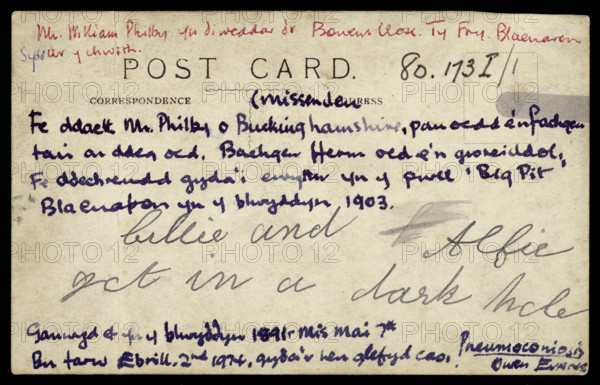 Mr. William Philby yn diweddar o'r Bowens Close. Ty Fry. Blaenavon
Sydd ar y chwith.
POST CARD. 80. 173 I/1
CORRESPONDENCE (Missenden ADDRESS
Fe ddaeth Mr. Philby o Buckinghamshire, pan oedd e'n fachgen
tair ar ddeg oed. Bachgen Herm oed e'n gwreiddiol,
Fe ddechreuodd gyda'i ewythr yn y pwll 'Big Pit'
Blaenafon yn y blwyddyn 1903.
billie and Alfie
got in a dark hole
Ganwyd ef yn y blwyddyn 1891 - Mis Mai 7th
Bu farw Ebrill. 2nd 1974, gyda'r hen glefyd cas, Pneumoconiosis
Owen Evans